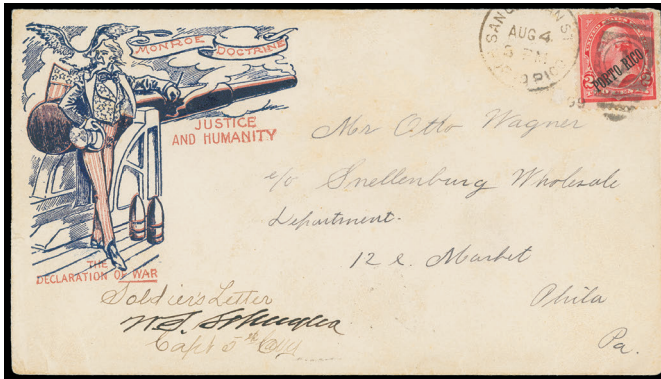 MONROE DOCTRINE
JUSTICE
AND HUMANITY
THE
DECLARATION OF WAR
AUG 4
PORTO RICO
Mr Otto Wagner
c/o Snellenburg Wholesale
Department.
12 & Market
Phila
Pa.
Soldier's Letter
Capt 5th